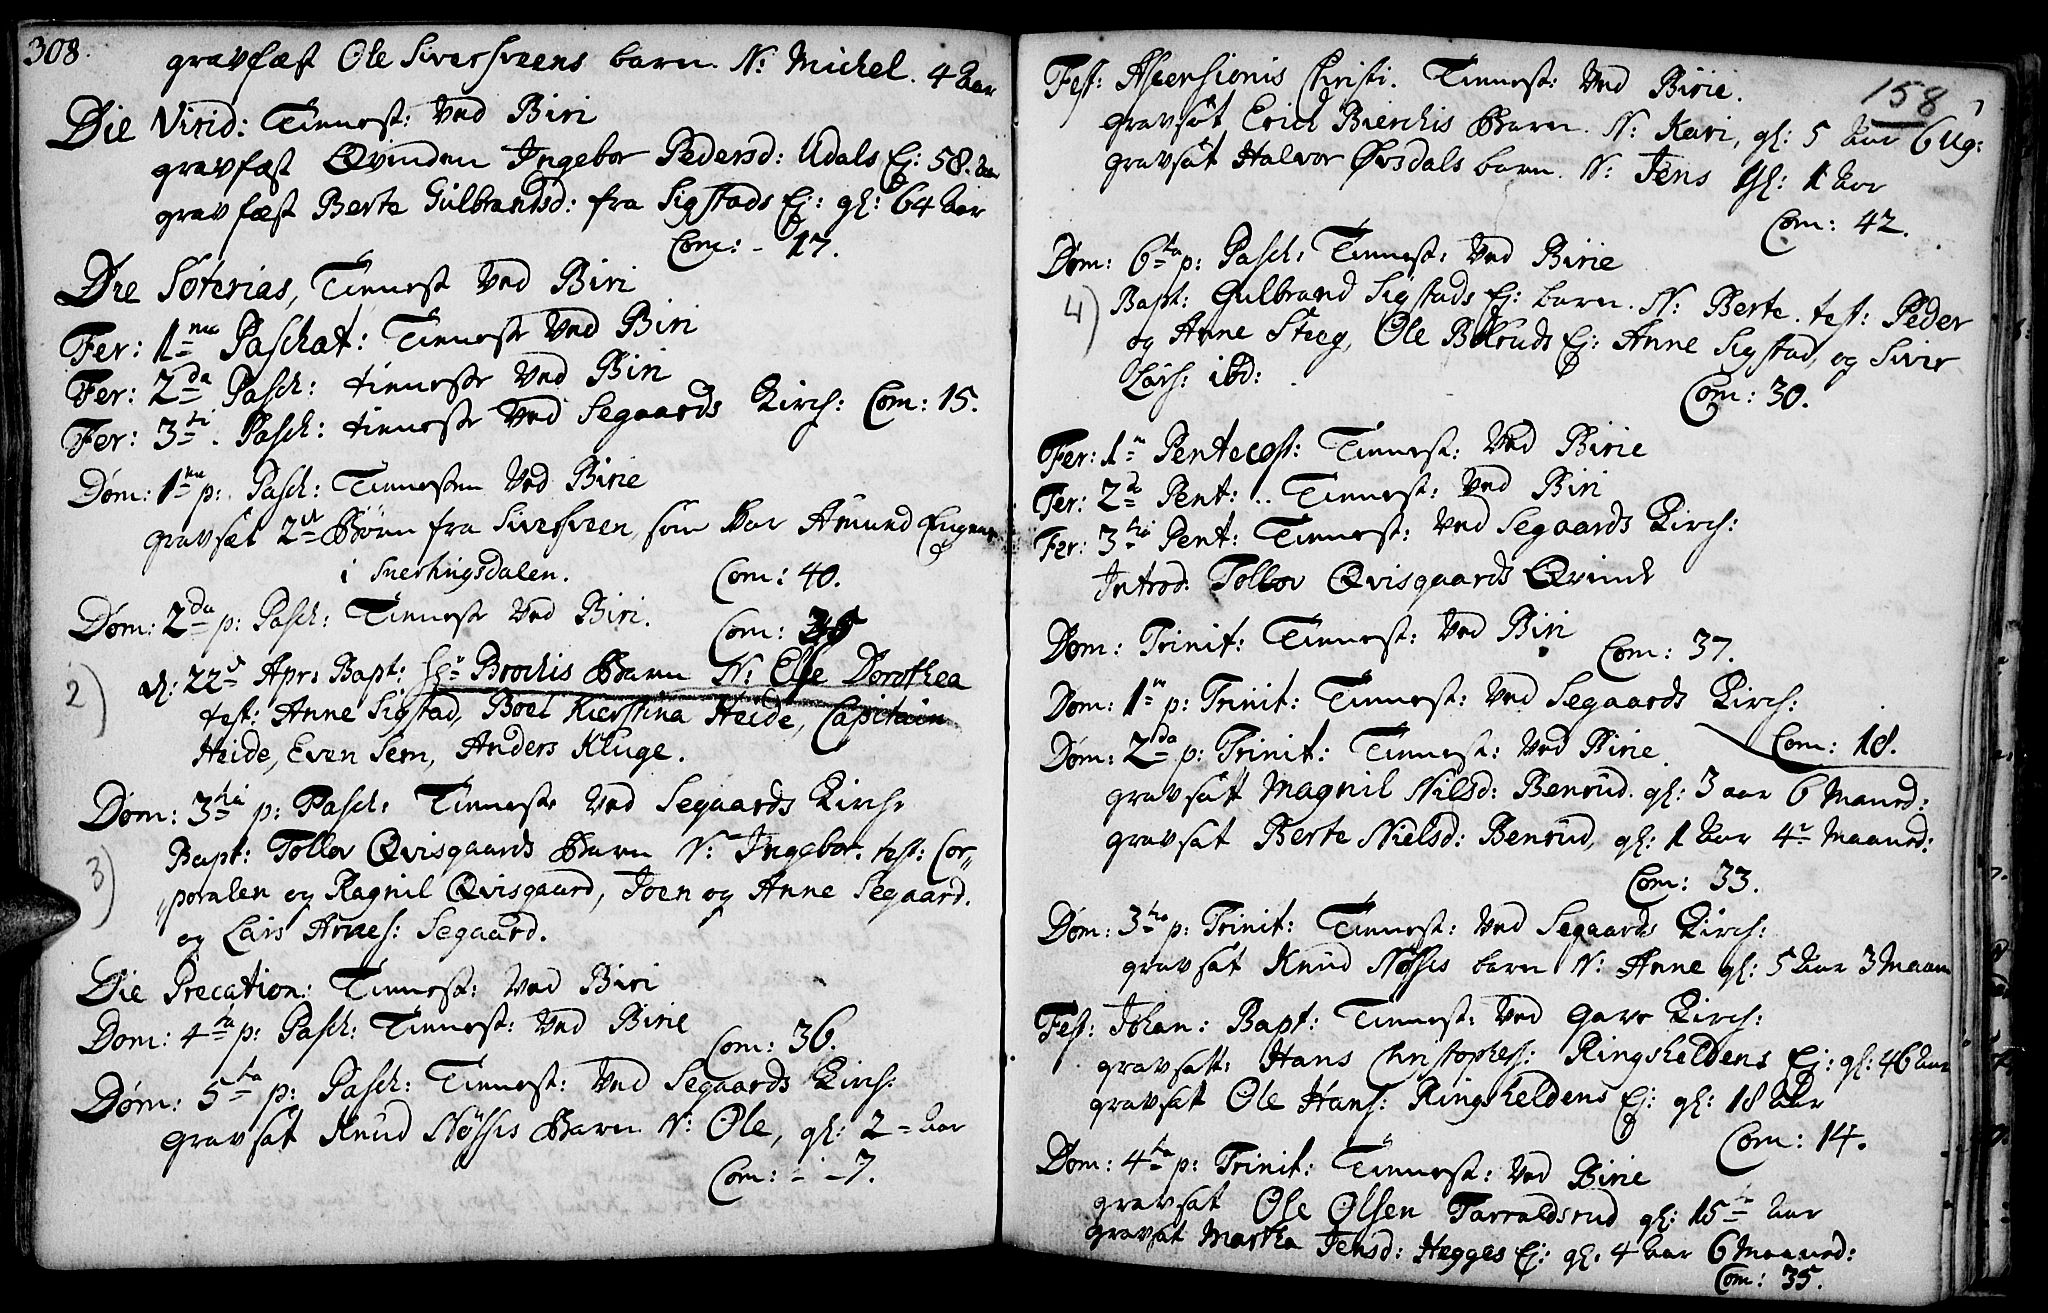 308.
gravfæst Ole Sivershveens barn. N: Michel. 4 Aar
Die Virid: Tienest: Ved Biri
gravfæst Qvinden Ingebor Pedersd: Udals Ej: 58. Aar
gravfæst Berte Gulbrandsd: fra Sigstads Ej: gl: 64 Aar
Com: - 17.
Die Soterias, Tienest Ved Biri
Fer: 1ma Paschat: Tienest Ved Biri
Fer: 2da Pasch: tieneste Ved Biri
Fer: 3ti. Pasch: tieneste Ved Segaards Kirch: Com: 15.
Dom: 1ma p: Pasch: Tienesten Ved Birie
gravsat 2de Børn fra Siversveen, som var Amund
i Snertingsdalen.
Com: 40.
Dom: 2da p: Pasch: Tieneste Ved Biri.
Com: 36
2)
d: 22de Apr: Bapt: Hr Brochis Barn N: Else Dorothea
test: Anne Sigstad, Boel Kierstina Heide, Capitain
Heide, Even Sem, Anders Kluge.
Dom: 3tia p: Pasch: Tienest: Ved Segaards Kirch:
3)
Bapt: Tollov Qvisgaards Barn N: Ingebor. test: Cor-
poralen og Ragnil Qvisgaard, Joen og Anne Segaard.
og Lars Arnes: Segaard.
Die Precation: Tienest: Ved Biri
Dom: 4ta p: Pasch: Tienest: Ved Birie
Com: 36.
Dom: 5ta p: Pasch: Tienest: Ved Segaards Kirch:
gravsat Knud Nøssis Barn N: Ole, gl: 2 - Aar
Com: - - 7.
158
Fest: Ascensionis Christi. Tienest: Ved Birie.
gravsat Erich Bierchis Barn. N: Kari, gl: 5 Aar 6 Ug:
gravsat Halvor Øvsdals barn. N: Jens gl: 1 Aar
Com: 42.
Dom: 6ta p: Pasch: Tienest: Ved Birie
4)
Bapt: Gulbrand Sigstads Ej: barn. N: Berte. test: Peder
og Anne Steeg, Ole Ej: Anne Sigstad, og Siver
Lars: ibd:
Com: 30.
Fer: 1ma Pentecost: Tienest: Ved Birie
Fer: 2da Pent: .. Tienest: Ved Biri
Fer: 3tia Pent: Tienest: Ved Segaards Kirch:
Introd: Tollov Qvisgaards Qvinde
Dom: Trinit: Tienest: Ved Biri
Com: 37.
Dom: 1ma p: Trinit: Tienest: Ved Segaards Kirch:
Com: 18.
Dom: 2da p: Trinit: Tienest: Ved Birie.
gravsatt Magnil Nilsd: Benrud. gl: 3 aar 6 Maaned:
gravsat Berte Nielsd: Benrud, gl: 1 Aar 4r Maaned:
Com: 33.
Dom: 3tia p: Trinit: Tienest: Ved Segaards Kirch:
gravsat Knud Nøssis barn N: Anne gl: 5 Aar 3 Maan
Fest: Johan: Bapt: Tienest: Ved Kirch:
gravsatt: Hans Christophers: Ringsheldens Ej: gl: 46 Aar
gravsat Ole Hans: Ringsheldens Ej: gl: 18 Aar
Com: 14.
Dom: 4ta p: Trinit: Tienest: Ved Birie
gravsat Ole Olsen Tarraldsrud gl: 15 Aar
gravsat Martha Jensd: Hegges Ej: gl: 4 Aar 6 Maaned:
Com: 35.